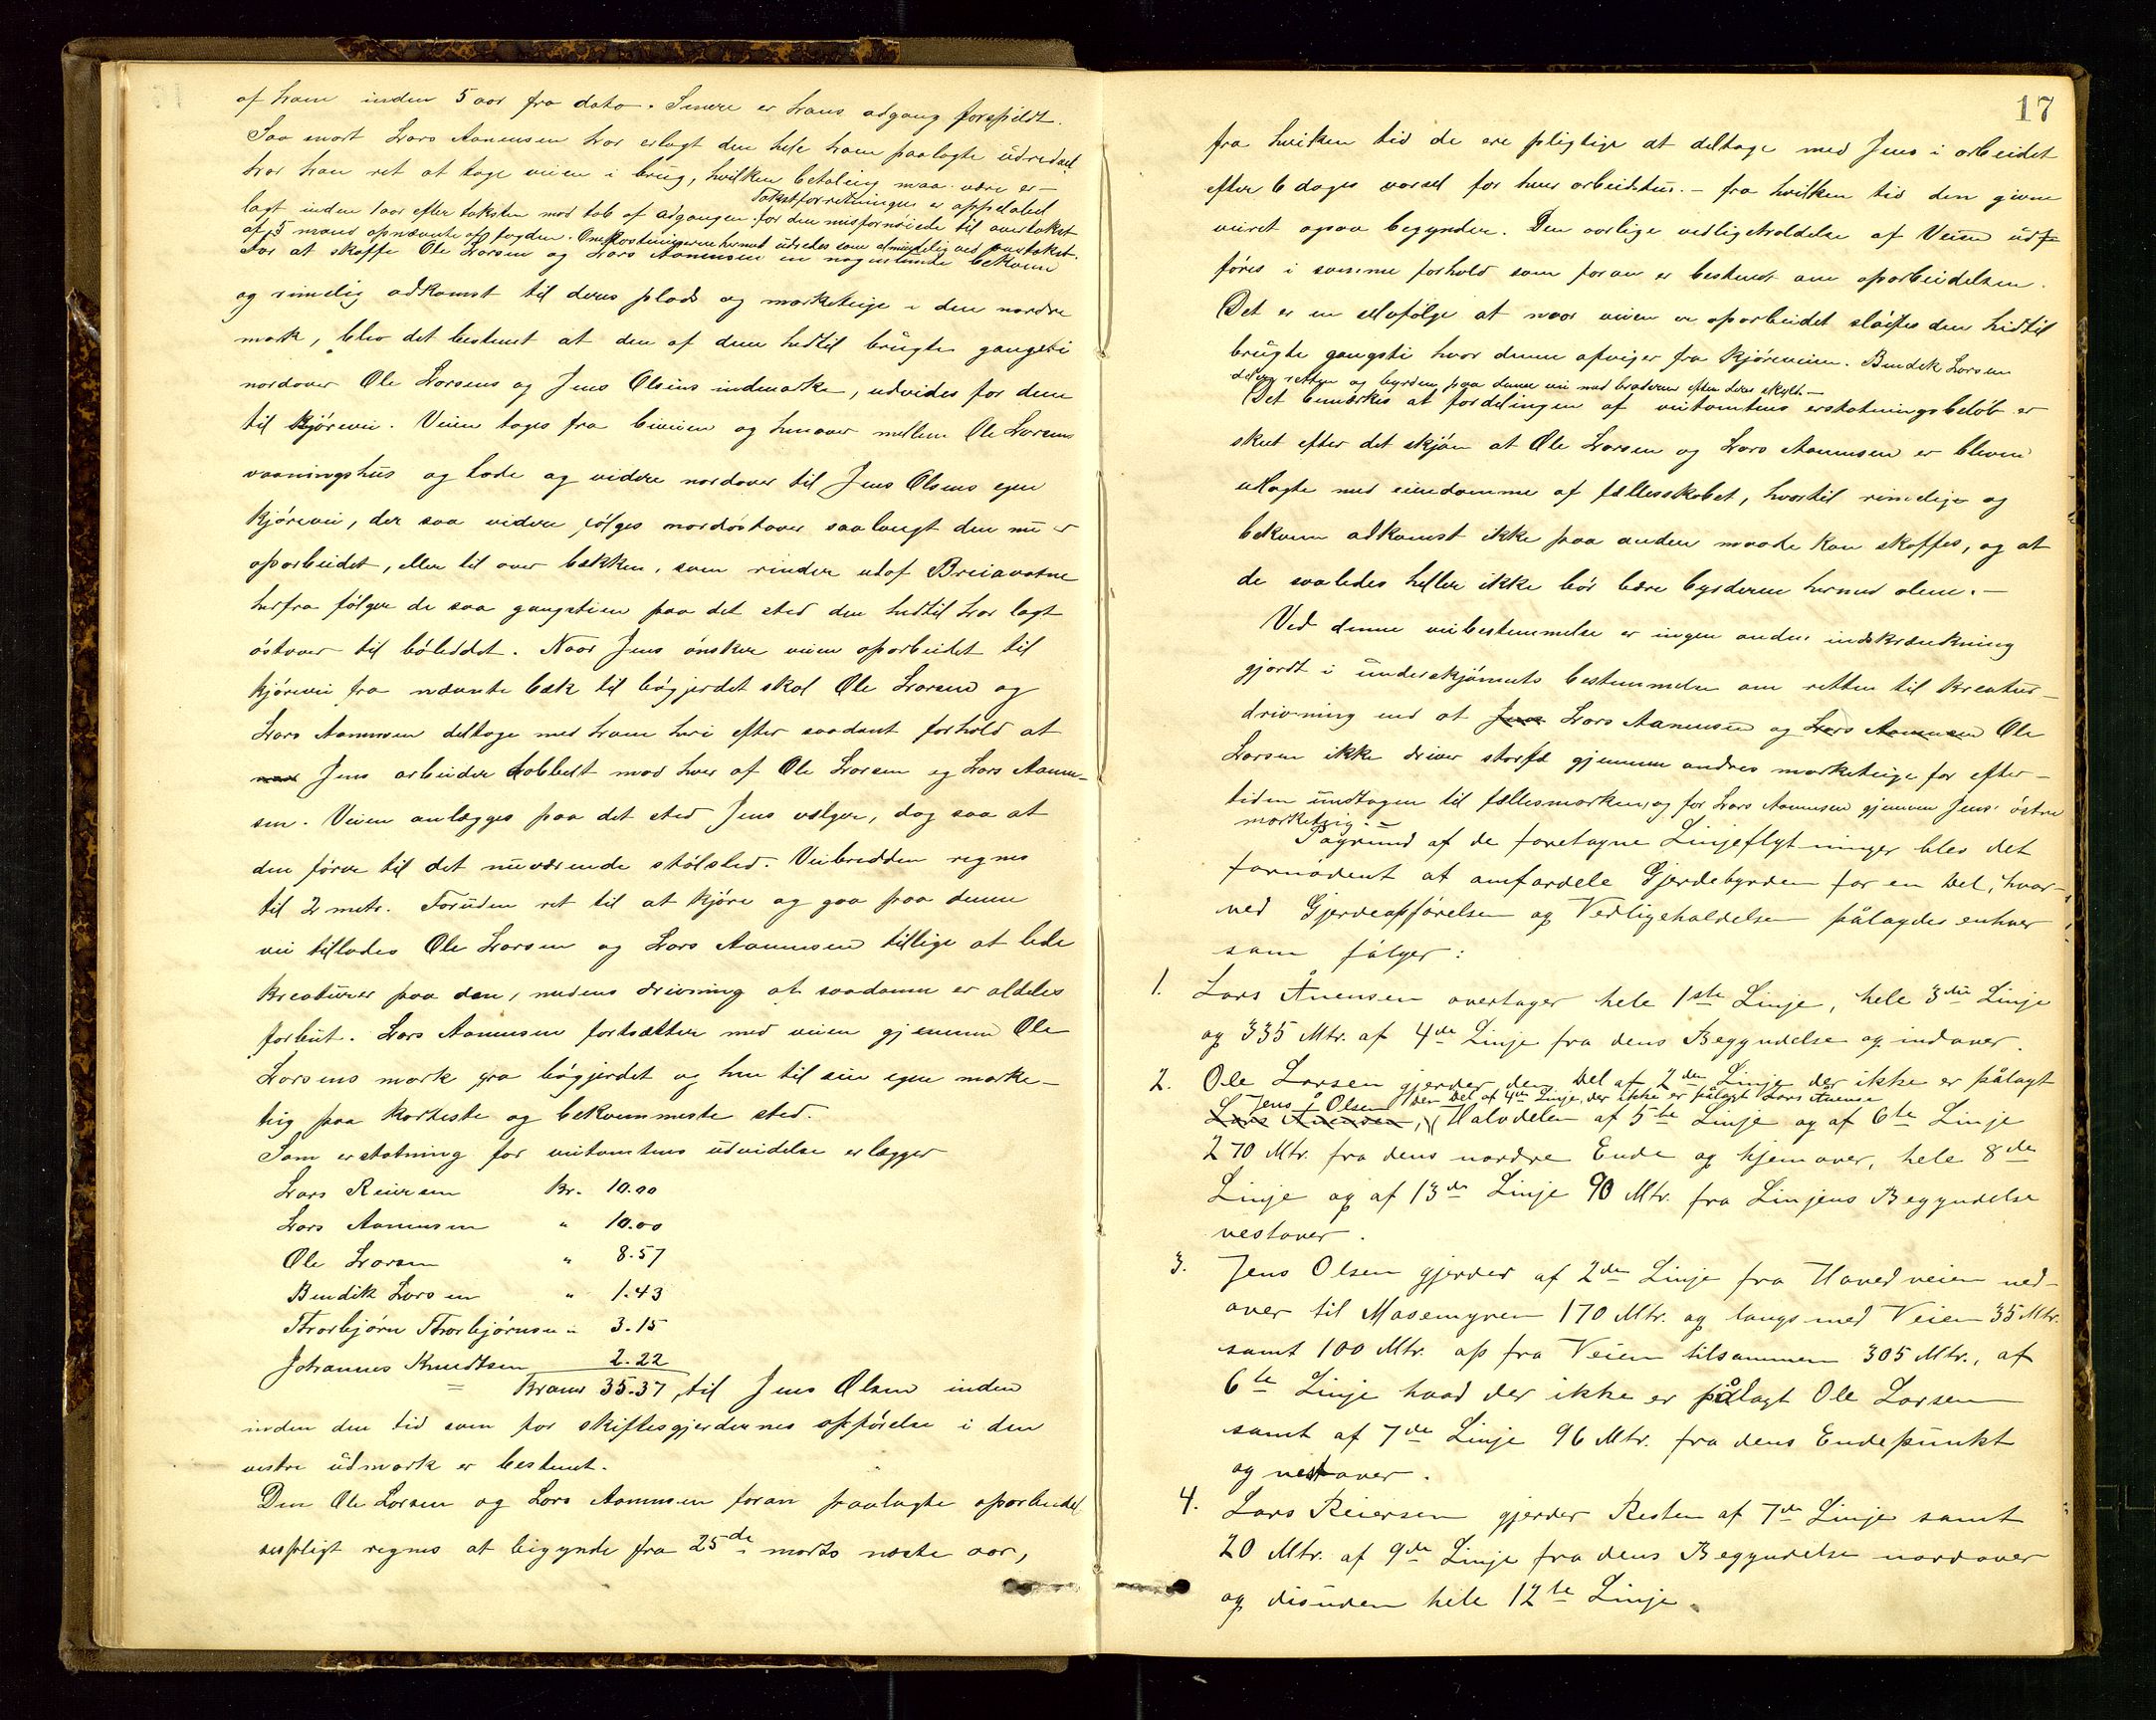 af ham inden 5 aar fra dato. Senere er hans adgang forspildt.
Saa snart Lars Aanensen har erlagt den hele ham paalagte udredsel
har han ret at tage veien i brug, hvilken betaling maa være er-
Takstforretningen er appelabel
lagt inden 1 aar efter taksten mod tab af adgangen. for den misfornøiede til overtakst
af 5 mænd opnævnte af fogden. Omkostningerne hermed udredes som almindelig ved overtakst.
For at skaffe Ole Larsen og Lars Aanensen en nogenlunde bekvem
og rimelig adkomst til deres plads og marketeige i den nordre
mark, blev det bestemt at den af dem hidtil brugte gangsti
nordover Ole Larsens og Jens Olsens indmarke, udvides for dem
til kjörevei. Veien tages fra biveien og henover mellem Ole Larsens
vaaningshus og lade og videre nordover til Jens Olsens egen
kjörevei, der saa videre fölges nordöstover saalangt den nu er
oparbeidet, eller til over bækken, som rinder udaf Breiavatne
herfra fölger de saa gangstien paa det sted den hidtil har lagt
östover til böleddet. Naar Jens önsker veien oparbeidet til
kjörevei fra nævnte bæk til bögjerdet skal Ole Larsen og
Lars Aanensen deltage med ham heri efter saadant forhold at
Jens arbeider dobbelt mod hver af Ole Larsen og Lars Aanen-
sen. Veien anlægges paa det sted Jens vælger, dog saa at
den förer til det nuværende stölsled. Veibredden regnes
til 2 metr. Foruden ret til at kjöre og gaa paa denne
vei tillades Ole Larsen og Lars Aanensen tillige at lede
kreaturer paa den, medens drivning af saadanne er aldeles
forbut. Lars Aanensen fortsætter med veien gjennem Ole
Larsens mark fra bögjerdet og hen til sin egen marke-
teig paa korteste og bekvemmeste sted.
Som erstatning for veitomtens udvidelse erlægger
Lars Reiersen Kr. 10.00
Lars Aanensen " 10.00
Ole Larsen " 8.57
Bendik Larsen " 1.43
Thorbjörn Thorbjörnsen " 3.15
Johannes Knudtsen 2.22
= Kroner 35.37, til Jens Olsen inden
inden den tid som for skiftesgjerdernes opförelse i den
vestre udmark er bestemt.
Den Ole Larsen og Lars Aanensen foran paalagte oparbeidel
sespligt regnes at begynde fra 25de marts næste aar,
17
fra hvilken tid de ere pligtige at deltage med Jens i arbeidet
efter 6 dages varsel for hver arbeidstur. – fra hvilken tid den givne
veiret ogsaa begynder. Den aarlige vedligeholdelse af Veien ud
föres i samme forhold som foran er bestemt om oparbeidelsen.
Det er en selvfölge at naar veien er oparbeidet slöifes den hidtil
brugte gangsti hvor denne afviger fra kjöreveien. Bendik Larsen
deler retten og byrden paa denne vei med broderen efter deres skyld. –
Det bemærkes at fordelingen af veitomtens erstatningsbelöb er
skeet efter det skjön at Ole Larsen og Lars Aanensen er bleven
udlagte med eiendomme af fællesskabet, hvortil rimelige og
bekvem adkomst ikke paa anden maade kan skaffes, og at
de saaledes heller ikke bör bære byrderne hermed alene. –
Ved denne veibestemmelse er ingen anden indskrænkning
gjordt i underskjönnets bestemmelse om retten til kreatur-
drivning end at Jens Lars Aanensen og Lars Aanensen Ole
Larsen ikke driver storfæ gjennem andres marketeige for efter-
tiden undtagen til fællesmarken, og for Lars Aanensen gjennem Jens' östre
marketeig. –
Pågrund af de foretagne Linjeflytninger blev det
fornødent at omfordele Gjerdebyrden for en Del, hvor-
ved Gjerdeopførelsen og Vedligeholdelsen pålagdes enhver
som følger:
1. Lars Ånensen overtager hele 1ste Linje, hele 3die Linje
og 335 Mtr. af 4de Linje fra dens Begyndelse og indover.
2. Ole Larsen gjerder den Del af 2den Linje der ikke er pålagt
Jens Olsen den Del af 4de Linje, der ikke er pålagt Lars Ånense
Lars Ånensen, Halvdelen af 5te Linje og af 6te Linje
270 Mtr. fra dens nordre Ende og hjemover, hele 8de
Linje og af 13de Linje 90 Mtr. fra Linjens Begyndelse
vestover.
3. Jens Olsen gjerder af 2den Linje fra Hovedveien ned-
over til Mosemyren 170 Mtr. og langs med Veien 35 Mtr.
samt 100 Mtr. op fra Veien tilsammen 305 Mtr., af
6te Linje hvad der ikke er pålagt Ole Larsen
samt af 7de Linje 96 Mtr. fra dens Endepunkt
og vestover.
4. Lars Reiersen gjerder Resten af 7de Linje samt
20 Mtr. af 9de Linje fra dens Begyndelse nordover
og desuden hele 12te Linje.